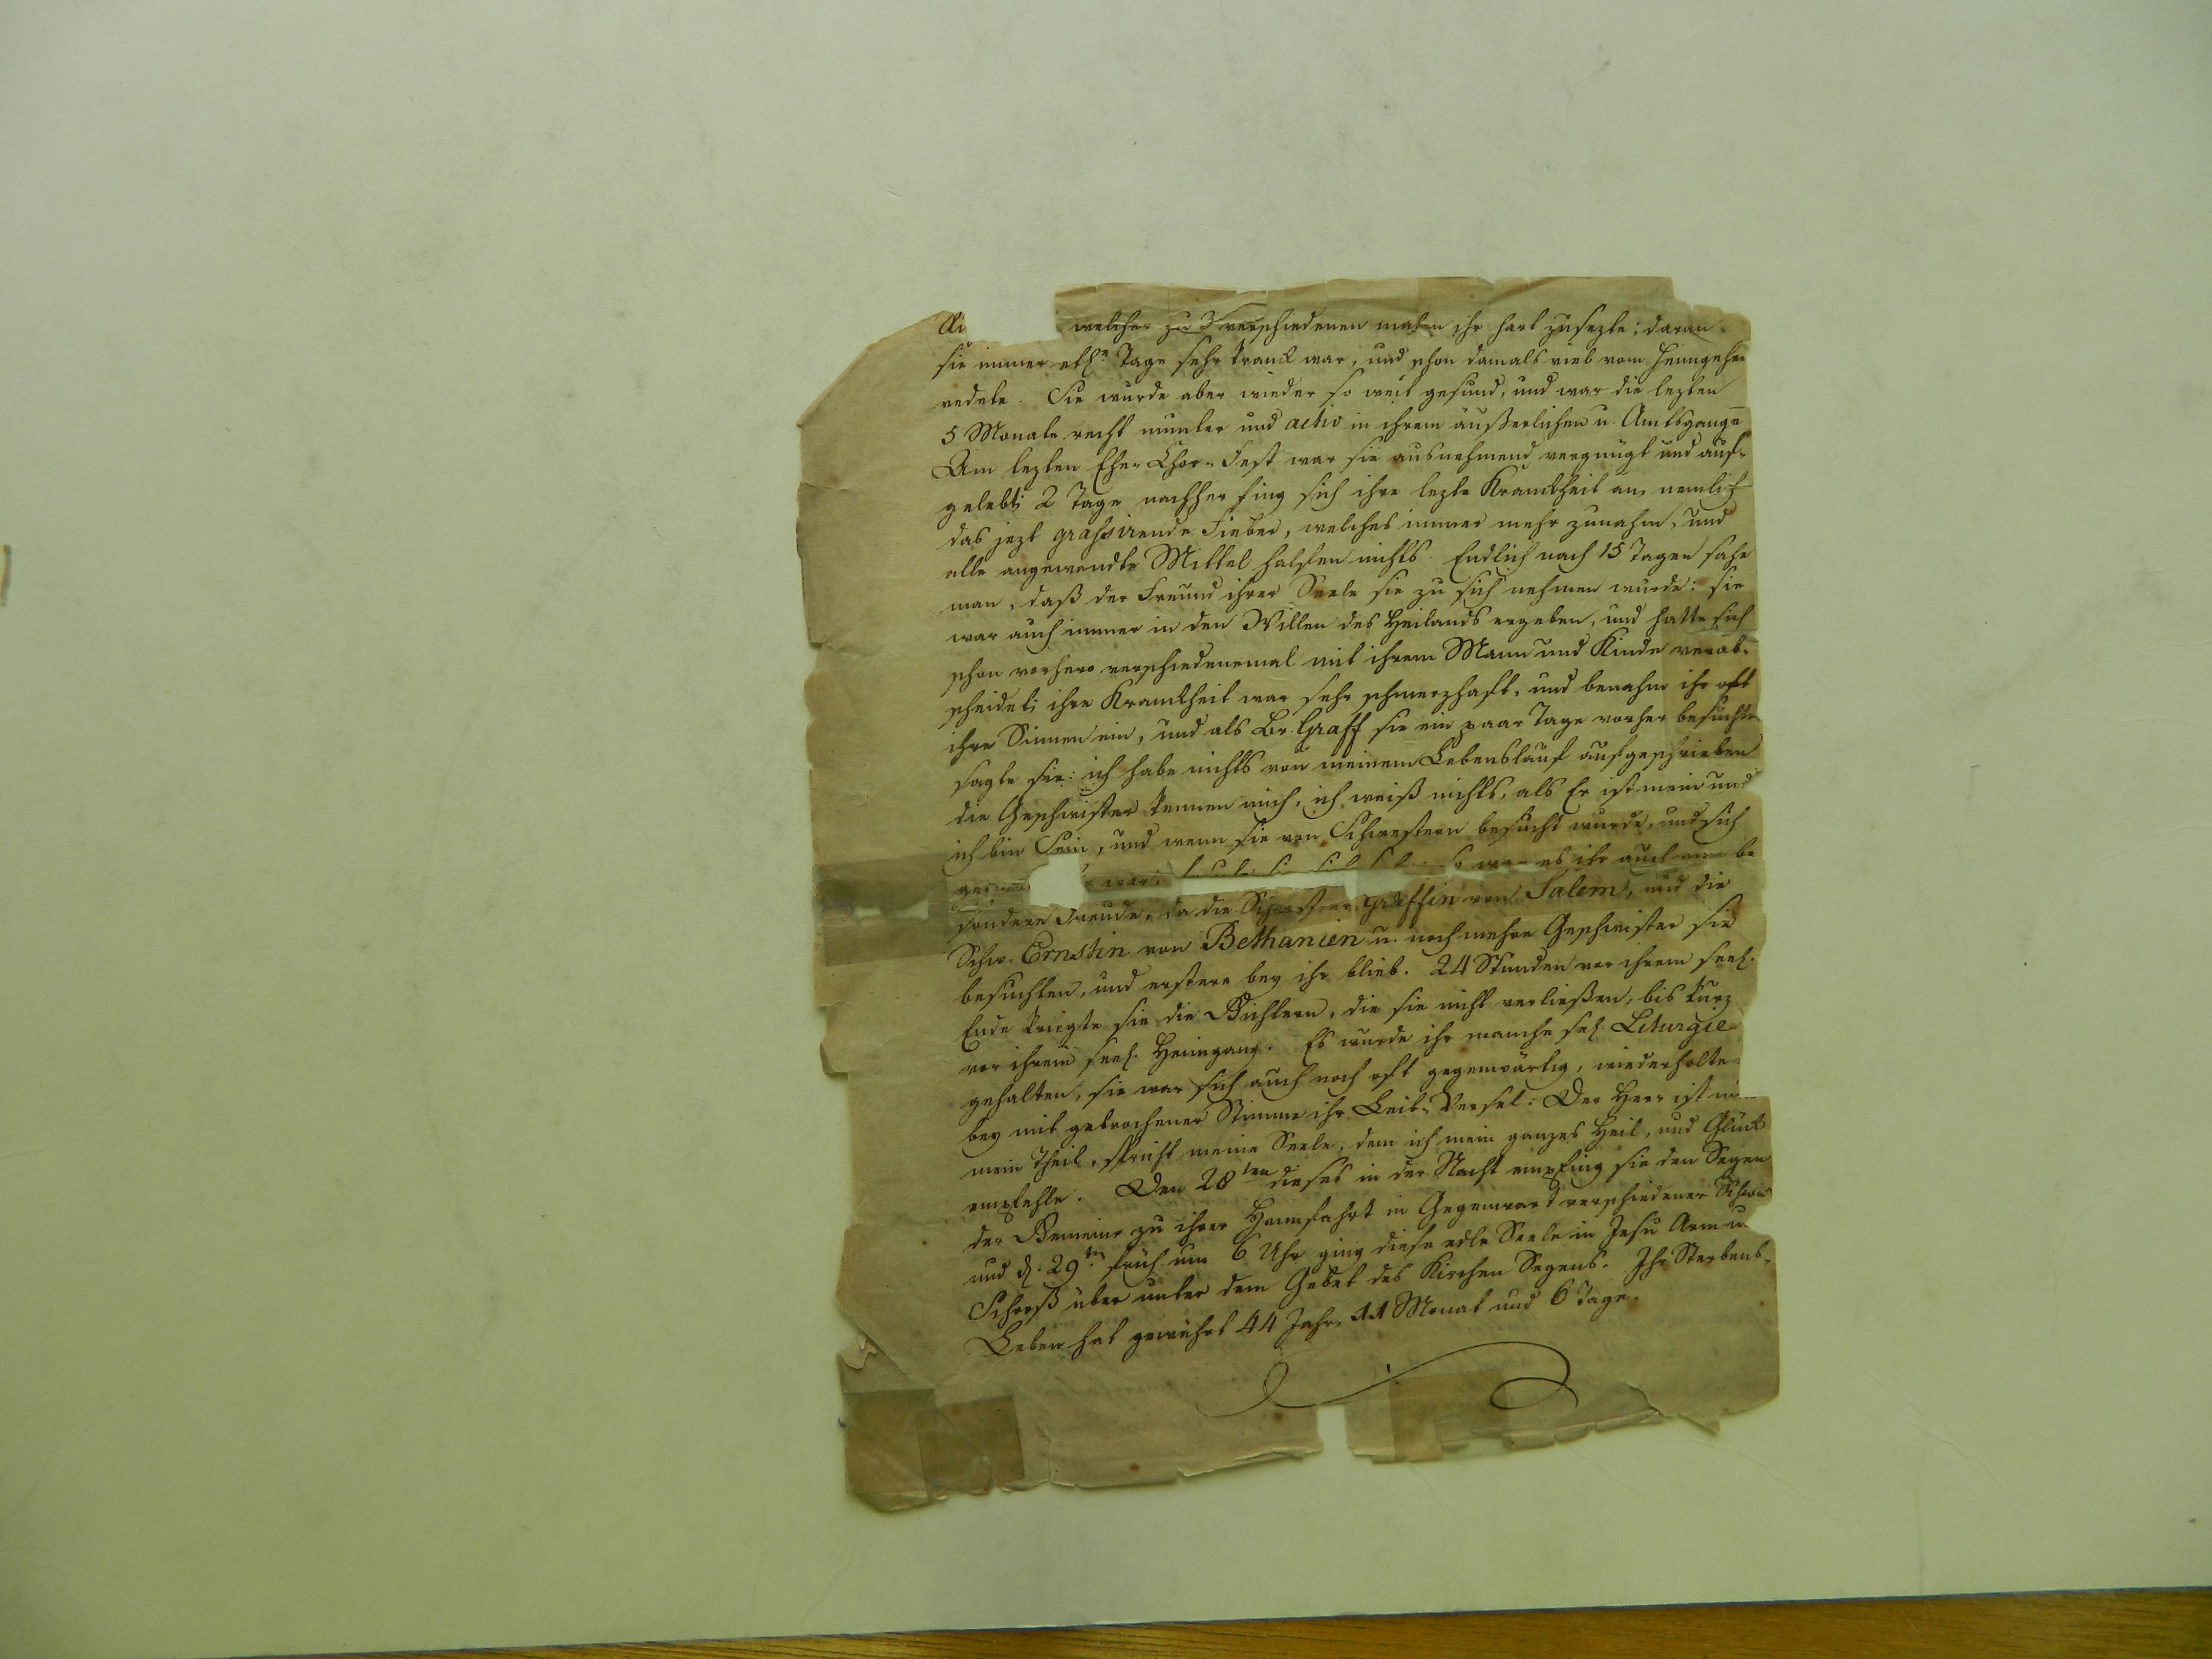 welcher zu 3 verschiedenen malen ihr hart zusezte; daran
sie immer etl. Tage sehr kranck war, und schon damals viel vom Heimgehen
redete. Sie wurde aber wieder so weit gesund, und war die lezten
5 Monate recht munter und activ in ihrem äußerlichen u. Amtsgange
Am lezten Ehe-Chor-Fest war sie ausnehmend vergnügt und auf-
gelebt; 2 Tage nachher fing sich ihre lezte Kranckheit an, nemlich
das jezt grassirende Fieber, welches immer mehr zunahm, und
alle angewandte Mittel halfen nichts. Endlich nach 15 Tagen sahe
man, daß der Freund ihrer Seele sie zu sich nehmen wurde: sie
war auch immer in den Willen des Heilands ergeben, und hatte sich
schon vorhero verschiedenemal mit ihrem Mann und Kinde verab-
scheidet; ihre Kranckheit war sehr schmerzhaft, und benahm ihr oft
ihre Sinnen ein, und als Br. Graff sie ein paar Tage vorher besuchte
sagte sie: ich habe nichts von meinem Lebenslauf aufgeschrieben
die Geschwister kennen mich, ich weiß nichts, als Er ist mein und
ich bin Sein, und wenn sie von Schwestern besucht wurde, und sich
war es ihr auch eine be
sondere Freude, da die Schwester Gräffin von Salem, und die
Schw. Ernstin von Bethanien u. noch mehre Geschwister sie
besuchten, und erstere bey ihr blieb. 24 Stunden vor ihrem seel.
Ende kriegte sie die Gichtern, die sie nicht verließen, bis kurz
vor ihrem seel. Heimgang. Es wurde ihr manche sel. Liturgie
gehalten, sie war sich auch noch oft gegenwärtig, wiederholte
bey mit gebrochener Stimme ihr Leib-Versel: Der Herr ist
mein Theil, spricht meine Seele, dem ich mein ganzes Heil, und Glück
empfehle. Den 28ten dieses in der Nacht empfing sie den Segen
der Gemeine zu ihrer Heimfahrt in Gegenwart verschiedener Schw.
und d. 29ten früh um 6 Uhr ging diese edle Seele in Jesu Arm u.
Schooß über unter dem Gebet des Kirchen Segens. Ihr Sterbens-
Leben hat gewährt 44 Jahr, 11 Monat und 6 Tage.